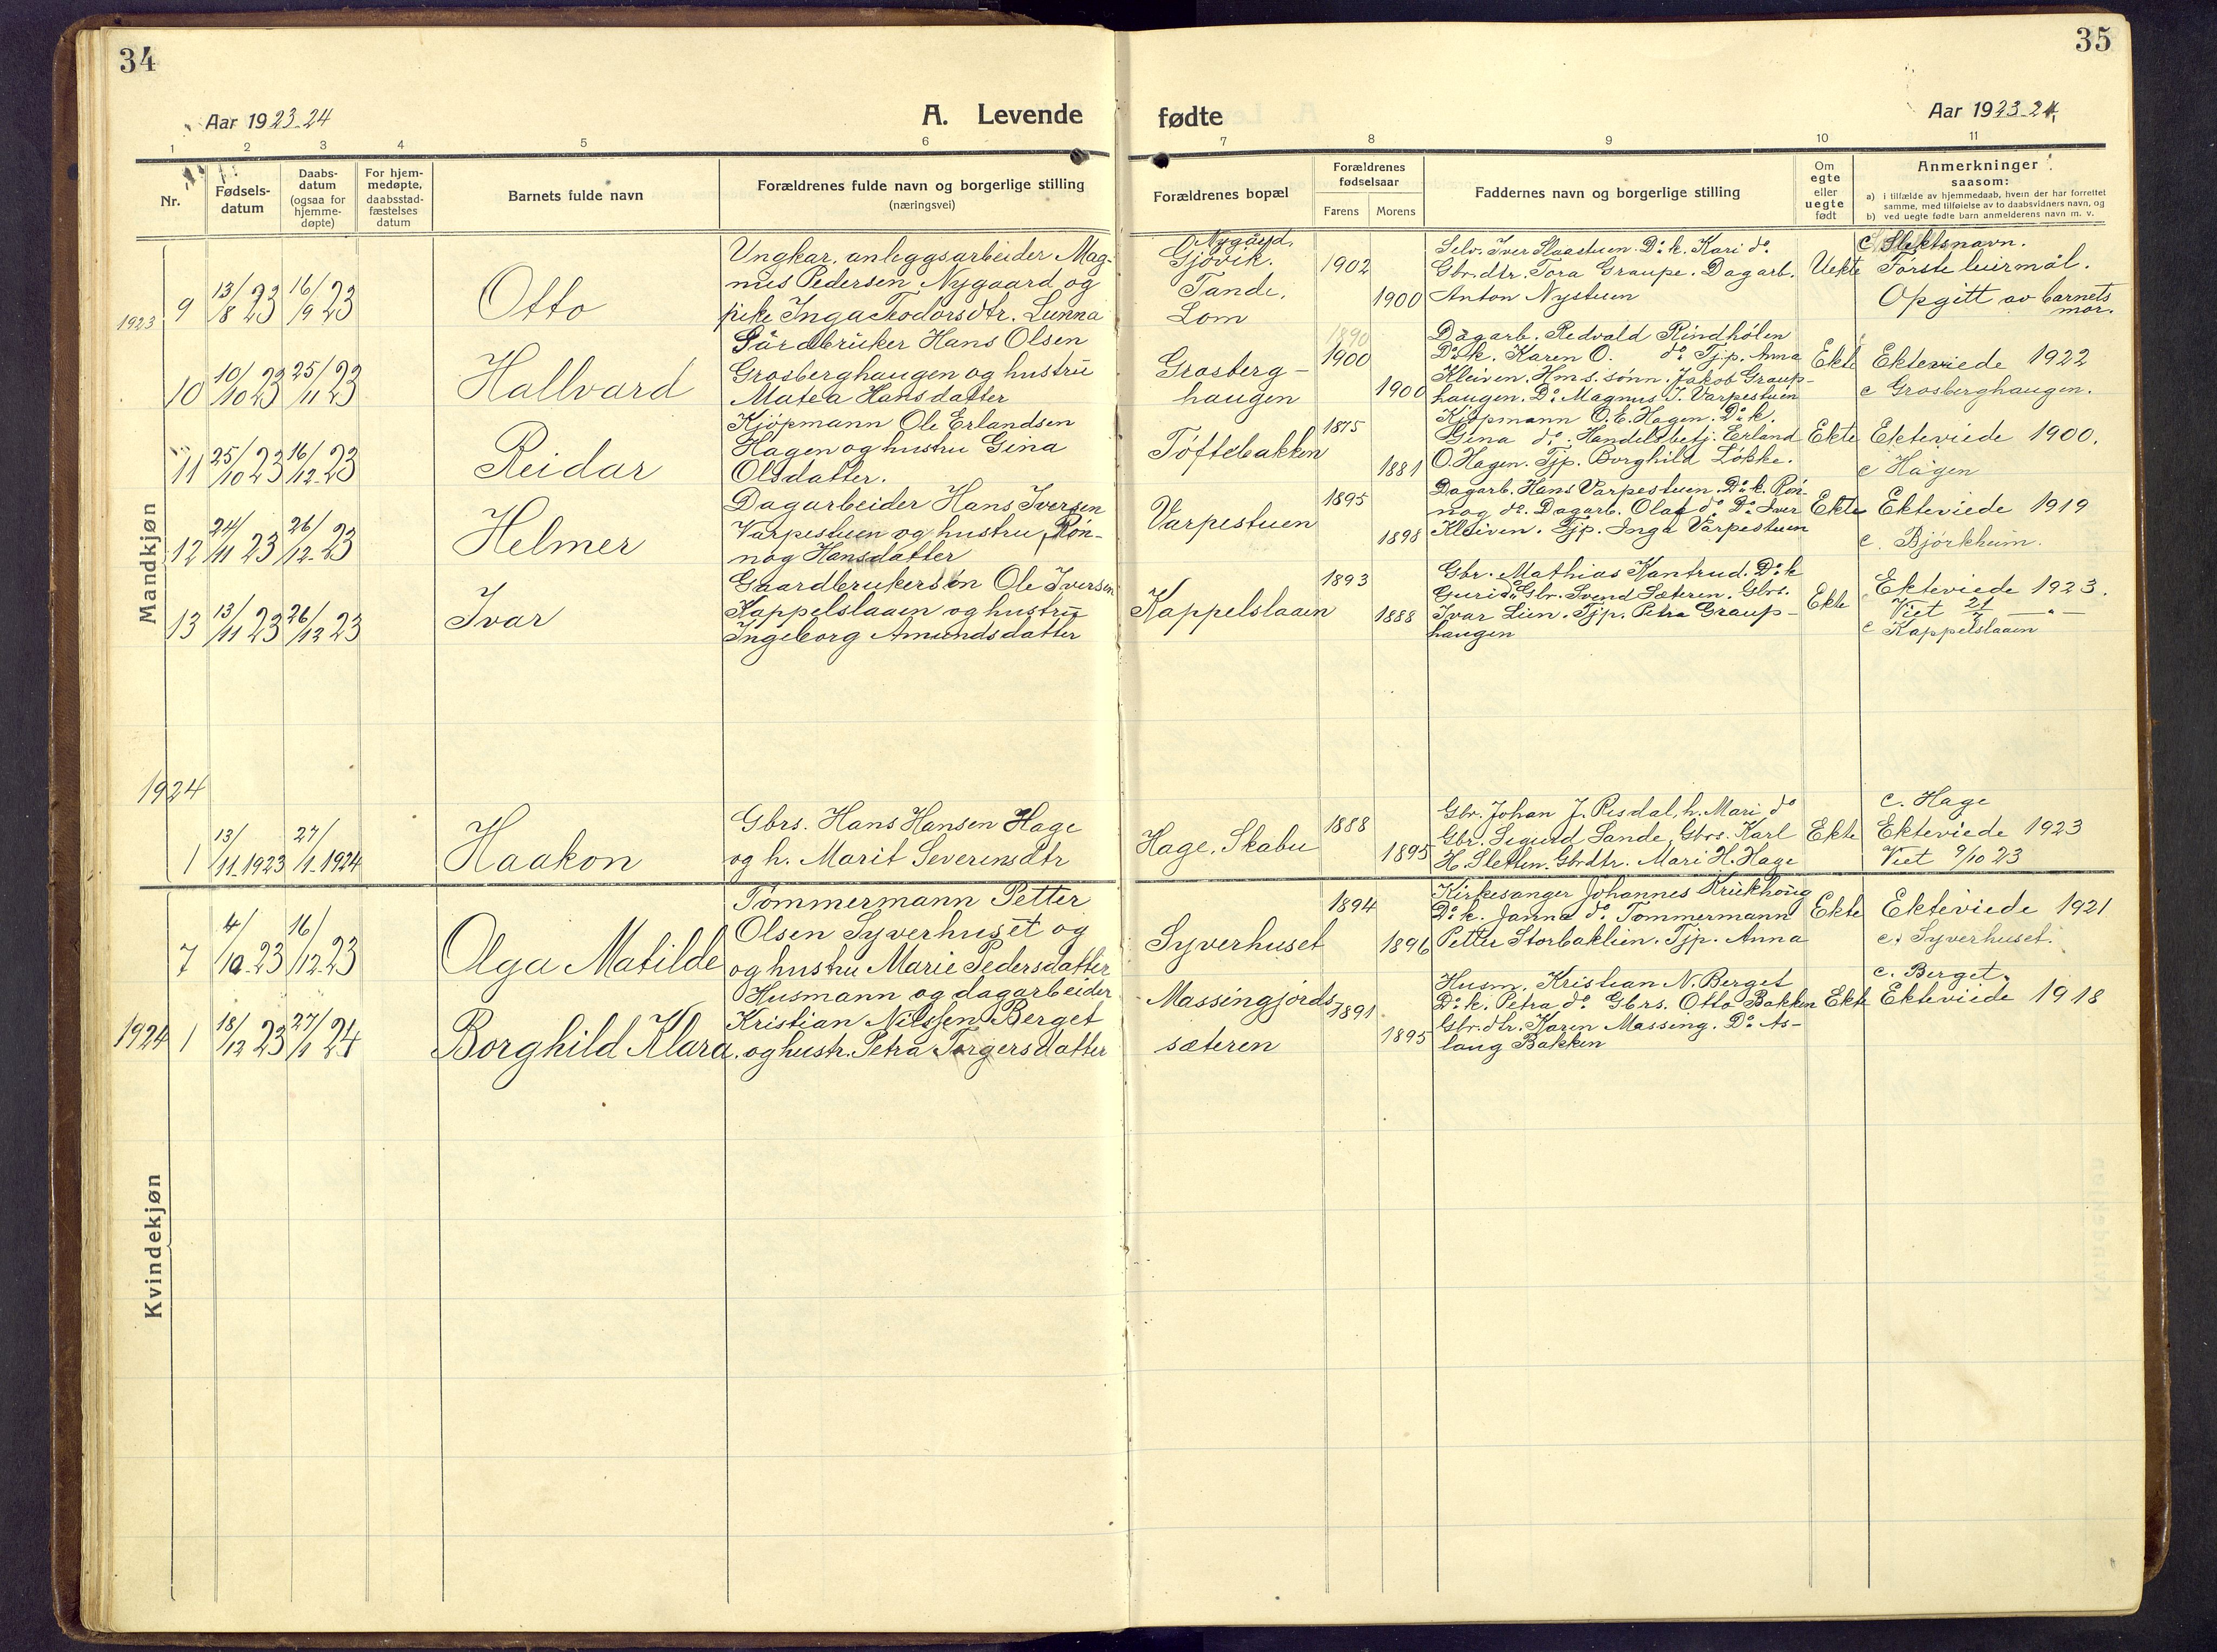 34
35
Aar 1923-24
A. Levende
fødte
Aar 1923-24
1
2
3
4
5
6
7
8
9
10
11
Nr.
Fødsels-
datum
Daabs-
datum
(ogsaa for
hjemme-
døpte)
For hjem-
medøpte,
daabsstad-
fæstelses
datum
Barnets fulde navn
Forældrenes fulde navn og borgerlige stilling
(næringsvei)
Forældrenes bopæl
Forældrenes
fødselsaar
Farens
Morens
Faddernes navn og borgerlige stilling
Om
egte
eller
uegte
født
Anmerkninger
saasom:
a) i tilfælde av hjemmedaab, hvem der har forrettet
samme, med tilføielse av to daabsvidners navn, og
b) ved uegte fødte barn anmelderens navn m. v.
Mandkjøn
1923
9
13/8 23
16/9 23
Otto
Ungkar, anleggsarbeider Mag-
nus Pedersen Nygaard og
pike Inga Teodorsdtr. Lunna
Nygård,
Gjøvik.
Tande,
Lom
1902
1900
Selv. Iver Slaastuen. Do k. Kari do.
Gbr.dtr. Tora Graupe. Dagarb.
Anton Nystuen
Uekte
c Slektsnavn.
Første leirmål.
Opgitt av barnets
mor.
10
10/10 23
25/11 23
Hallvard
Gårdbruker Hans Olsen
Grosberghaugen og hustru
Matea Hansdatter
Grosberg-
haugen
1890
1900
1900
Dagarb. Redvald Rindhølen
Do k. Karen O. do Tjp. Anna
Kleiven. Hms. sønn. Jakob Graup-
haugen. Do Magnus J. Varpestuen
Ekte
Ekteviede 1922
c Grosberghaugen.
11
25/10 23
16/12 23
Reidar
Kjøpmann Ole Erlandsen
Hagen og hustru Gina
Olsdatter.
Tøftebakken
1875
1881
Kjøpmann O. E. Hagen. Do k.
Gina do. Handelsbetj. Erland
O. Hagen. Tjp. Borghild Løkke.
Ekte
Ekteviede 1900.
c Hagen
12
24/11 23
26/12 23
Helmer
Dagarbeider Hans Iversen
Varpestuen og hustru Røn-
nog Hansdatter
Varpestuen
1895
1898
Dagarb. Hans Varpestuen. Do k. Røn-
nog do. Dagarb. Olaf do. Do Iver
Kleiven. Tjp. Inga Varpestuen
Ekte
Ekteviede 1919
c. Bjørkheim.
13
13/11 23
26/12 23
Ivar
Gaardbrukersøn Ole Iversen
Kappelslaaen og hustru
Ingeborg Amundsdatter
Kappelslaaen
1893
1888
Gbr. Mathias Kantrud. Do k
Guri do. Gbr. Svend Sæteren. Gbrs.
Ivar Lien. Tjp. Petra Graup-
haugen
Ekte
Ekteviede 1923.
Viet 21/7 — " —
c Kappelslaaen
1924
1
13/11 1923
27/1 1924
Haakon
Gbrs. Hans Hansen Hage
og h. Marit Severinsdtr
Hage, Skabu
1888
1895
Gbr. Johan J. Risdal, h. Mari do
Gbr. Sigurd Sande, Gbrs. Karl
H. Sletten. Gbrdtr. Mari H. Hage
Ekte
c. Hage
Ekteviede 1923
Viet 9/10 23
Kvindekjøn
7
4/10 23
16/12 23
Olga Matilde
Tømmermann Petter
Olsen Syverhuset og
og hustru Marie Pedersdatter
Syverhuset
1894
1896
Kirkesanger Johannes Krukhoug
Do k. Janna do. Tømmermann
Petter Storbaklien. Tjp. Anna
Ekte
Ekteviede 1921
c. Syverhuset.
1924
1
18/12 23
27/1 24
Borghild Klara
Husmann og dagarbeider
Kristian Nilssen Berget
og hustr. Petra Torgersdatter
Massingjords-
sæteren
1891
1895
Husm. Kristian N. Berget
Do k. Petra do. Gbrs. Otto Bakken
Gbr.dtr. Karen Massing. Do As-
laug Bakken
Ekte
c. Berget.
Ekteviede 1918